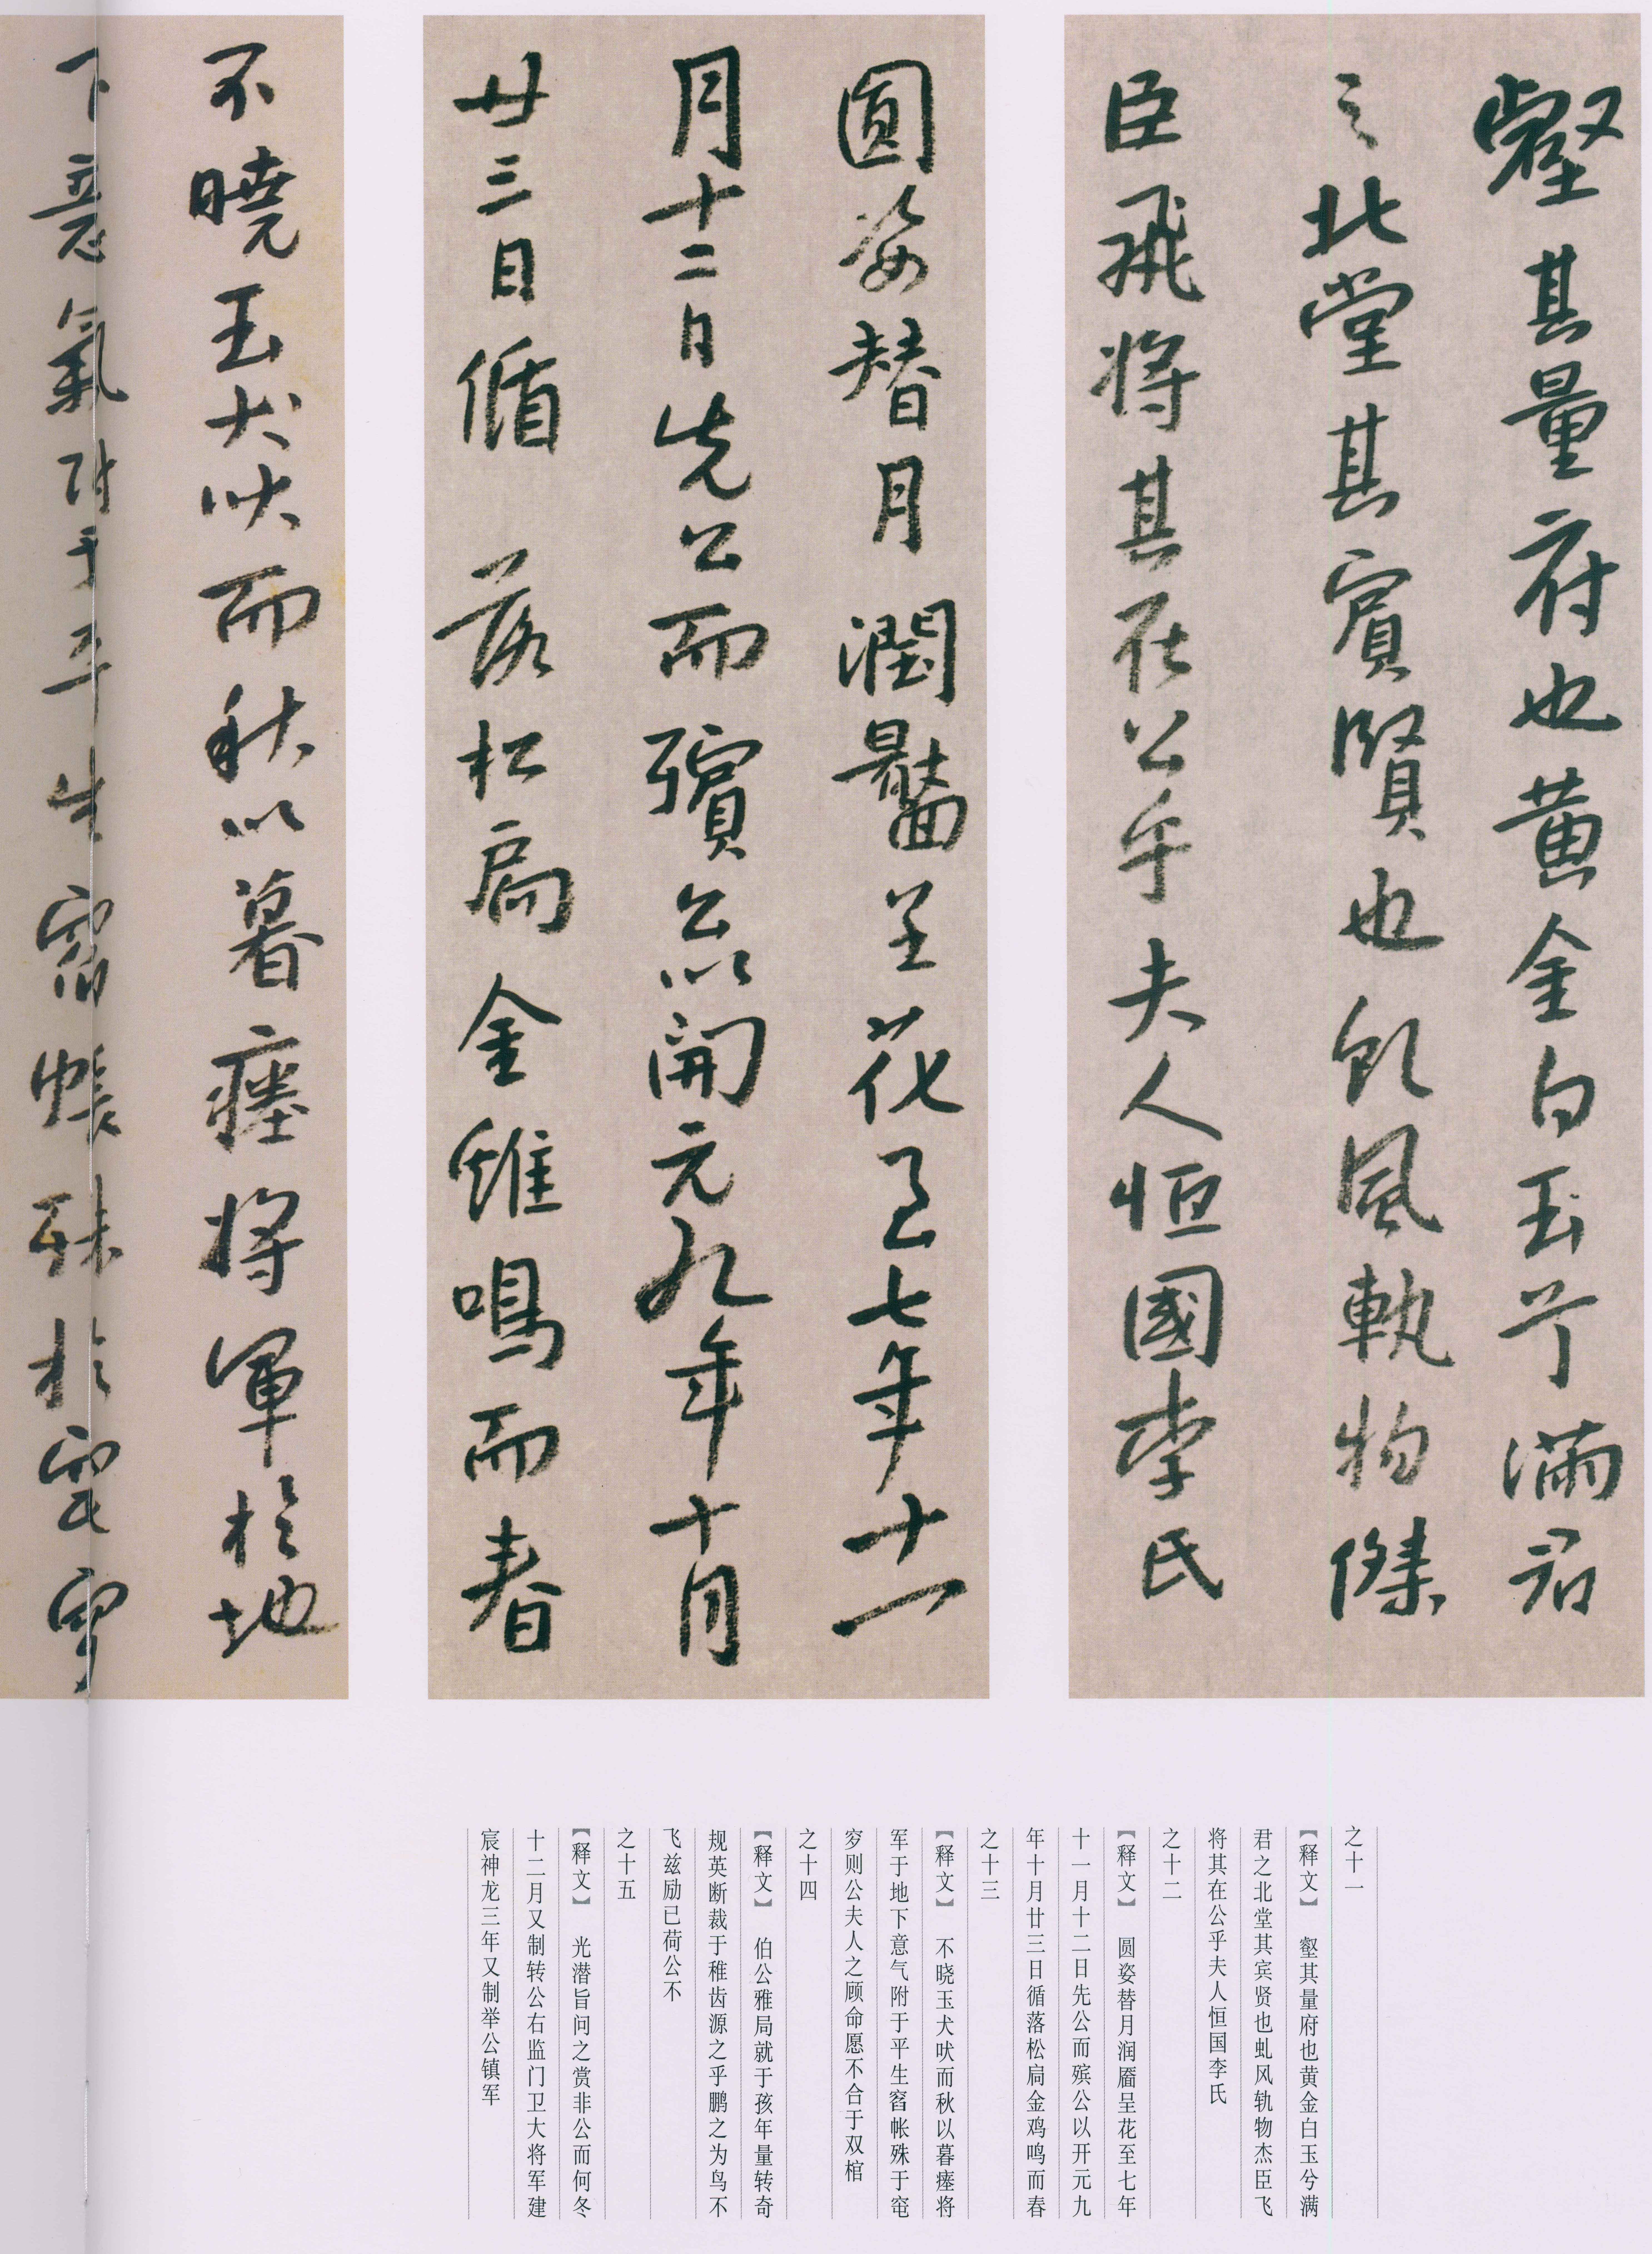 壑其量府也黄金白玉兮滿君
之北堂其賓賢也虬風軌物傑
臣飛將其在公乎夫人恒國李氏
圓姿替月潤靨呈花至七年十一
月十二日先公而殯公以開元九年十月
廿三日循落松扃金雞鳴而春
不曉玉犬吠而秋以暮瘞將軍於地
下意氣附于平生窅帳殊於窀穸
之十一
【释文】 壑其量府也黄金白玉兮满
君之北堂其宾贤也虬风轨物杰臣飞
将其在公乎夫人恒国李氏
之十二
【释文】 圆姿替月润靥呈花至七年
十一月十二日先公而殡公以开元九
年十月廿三日循落松扃金鸡鸣而春
之十三
【释文】 不晓玉犬吠而秋以暮瘗将
军于地下意气附于平生窅帐殊于窀
穸则公夫人之顾命愿不合于双棺
之十四
【释文】 伯公雅局就于孩年量转奇
规英断裁于稚齿源之乎鹏之为鸟不
飞兹励已荷公不
之十五
【释文】 光潜旨问之赏非公而何冬
十二月又制转公右监门卫大将军建
宸神龙三年又制举公镇军